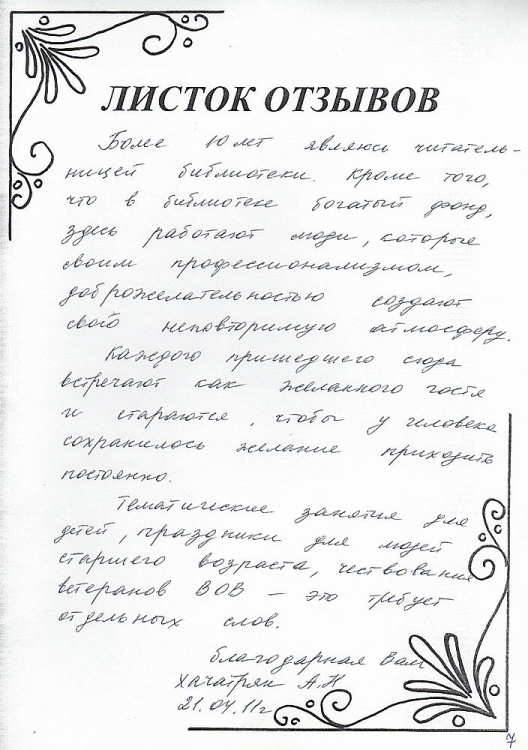 ЛИСТОК ОТЗЫВОВ
Более 10 лет являюсь читатель-
ницей библиотеки. Кроме того,
что в библиотеке богатый фонд,
здесь работают люди, которые
своим профессионализмом,
доброжелательностью создают
свой неповторимую атмосферу.
Каждого пришедшего сюда
встречают как желанного гостя
и стараются, чтобы у человека
сохранилось желание приходить
постоянно.
Тематические занятия для
детей, праздники для людей
старшего возраста, чествования
ветеранов ВОВ – это требует
отдельных слов.
Благодарная Вам
Хачатрян А.Н
21.04.11г
7